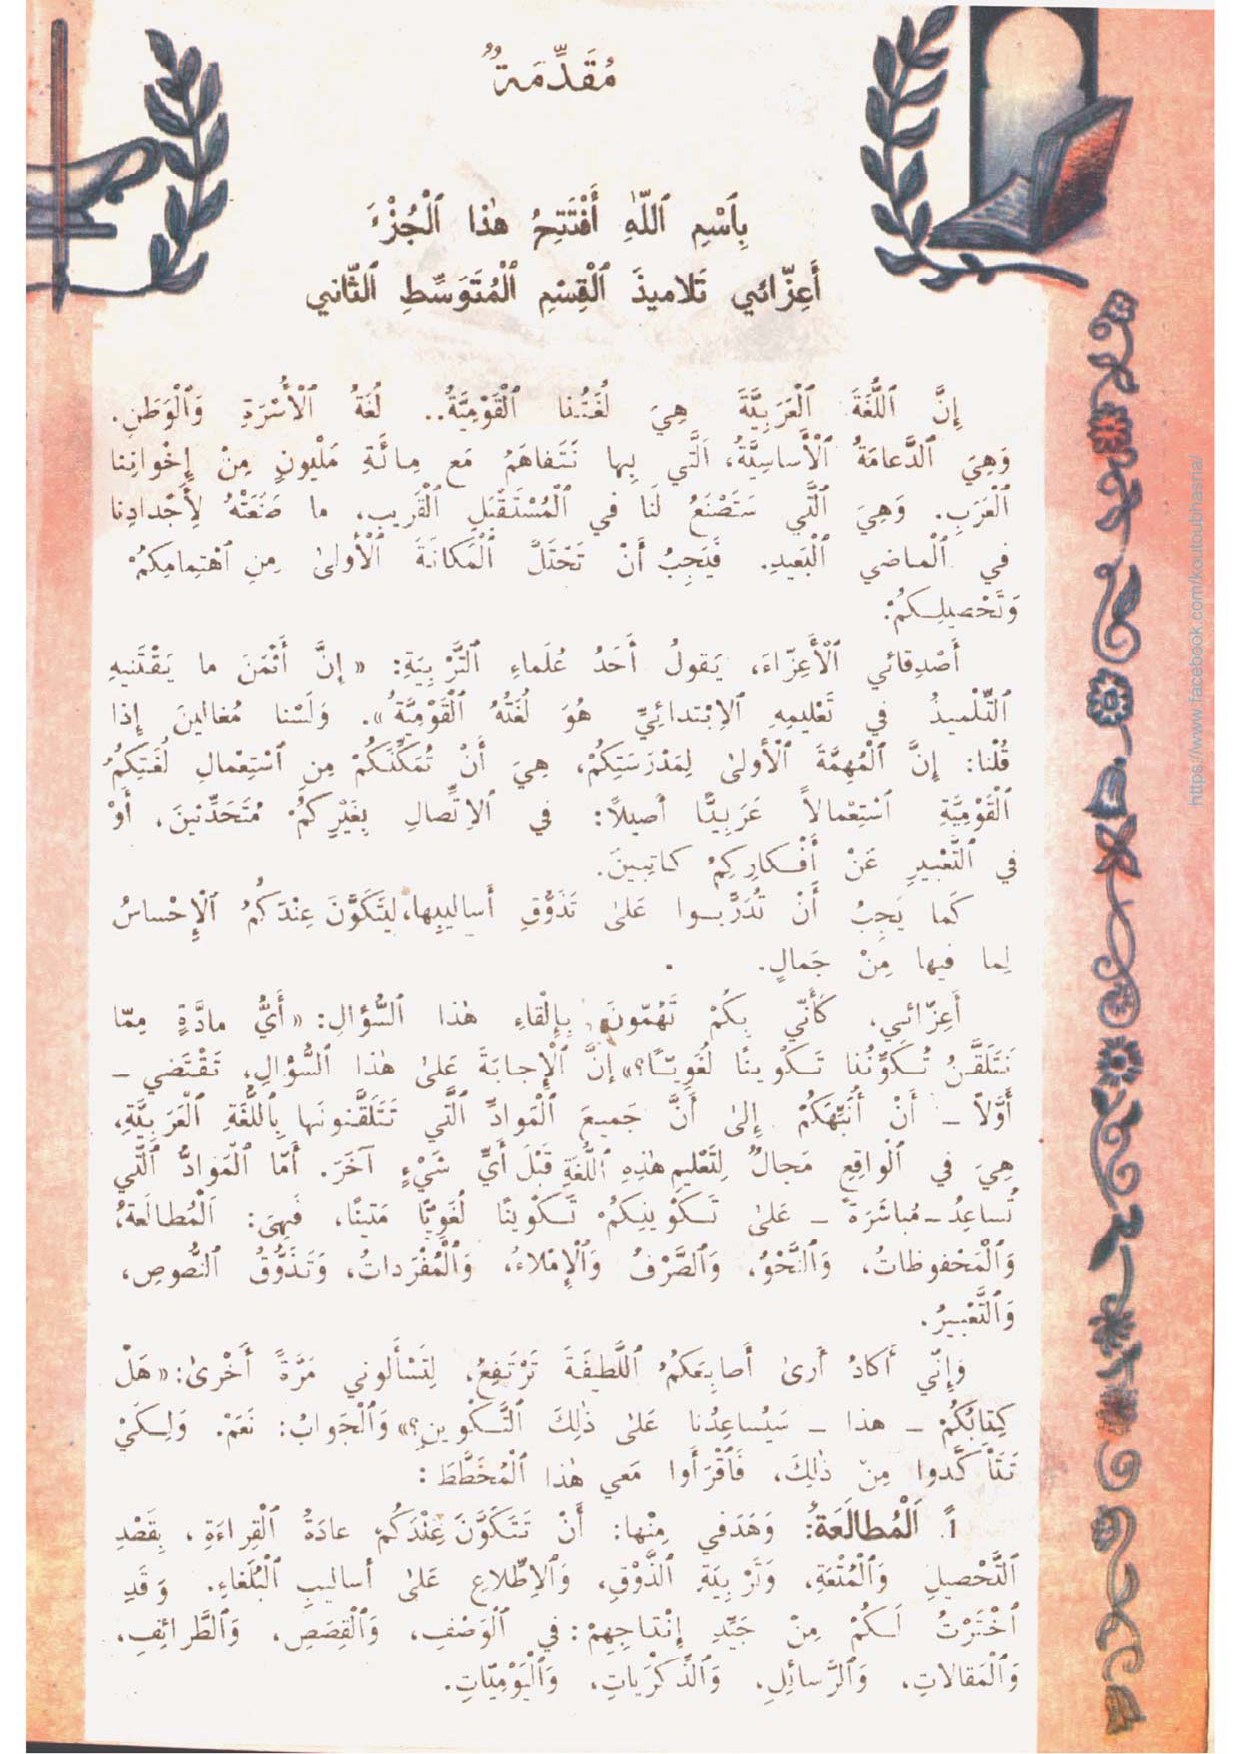 مُقَدِّمَةٌ
بِٱسْمِ ٱللّٰهِ أَفْتَتِحُ هٰذا ٱلْجُزْءَ
أَعِزّائي تَلاميذَ ٱلْقِسْمِ ٱلْمُتَوَسِّطِ ٱلثّاني
إِنَّ ٱللُّغَةَ ٱلْعَرَبِيَّةَ هِيَ لُغَتُنا ٱلْقَوْمِيَّةُ.. لُغَةُ ٱلْأُسْرَةِ وَٱلْوَطَنِ.
وَهِيَ ٱلدَّعامَةُ ٱلْأَساسِيَّةُ، ٱلَّتي بِها نَتَفاهَمُ مَع مِائَةِ مَلْيونٍ مِنْ إِخْوانِنا
ٱلْعَرَبِ. وَهِيَ ٱلَّتي سَتَصْنَعُ لَنا في ٱلْمُسْتَقْبَلِ ٱلْقَريبِ، ما صَنَعَتْهُ لِأَجْدادِنا
في ٱلْماضي ٱلْبَعيدِ. فَيَجِبُ أَنْ تَحْتَلَّ ٱلْمَكانَةَ ٱلْأولىٰ مِنِ ٱهْتِمامِكُمْ
وَتَحْصيلِكُمْ:
أَصْدِقائي ٱلْأَعِزّاءَ، يَقولُ أَحَدُ عُلَماءِ ٱلتَّرْبِيَةِ: « إِنَّ أَثْمَنَ ما يَقْتَنيهِ
ٱلتِّلْميذُ في تَعْليمِهِ ٱلاِبْتِدائِيِّ هُوَ لُغَتُهُ ٱلْقَوْمِيَّةُ». وَلَسْنا مُغالينَ إِذا
قُلْنا: إِنَّ ٱلْمُهِمَّةَ ٱلْأولىٰ لِمَدْرَسَتِكُمْ، هِيَ أَنْ تُمَكِّنَكُمْ مِنِ ٱسْتِعْمالِ لُغَتِكُمُ
ٱلْقَوْمِيَّةِ ٱسْتِعْمالاً عَرَبِيًّا أَصيلاً: في ٱلاِتِّصالِ بِغَيْرِكُمْ مُتَحَدِّثينَ، أَوْ
في ٱلتَّعْبيرِ عَنْ أَفْكارِكِمْ كاتِبينَ.
كَما يَجِبُ أَنْ تُدَرَّبوا عَلىٰ تَذَوُّقِ أَساليبِها، لِيَتَكَوَّنَ عِنْدَكُمُ ٱلْإِحْساسُ
لِما فيها مِنْ جَمالٍ.
أَعِزّائي، كَأَنّي بِكُمْ تَهُمّونَ بِإِلْقاءِ هٰذا ٱلسُّؤالِ: « أَيُّ مادَّةٍ مِمّا
نَتَلَقَّنُ تُكَوِّنُنا تَكْوينًا لُغَوِيًّا؟» إِنَّ ٱلْإِجابَةَ عَلىٰ هٰذا ٱلسُّؤالِ، تَقْتَضي -
أَوَّلاً - أَنْ أُنَبِّهَكُمْ إِلىٰ أَنَّ جَميعَ ٱلْمَوادِّ ٱلَّتي تَتَلَقَّنونَها بِٱللُّغَةِ ٱلْعَرَبِيَّةِ،
هِيَ في ٱلْواقِعِ مَجالٌ لِتَعْليمِ هٰذِهِ ٱللُّغَةِ قَبْلَ أَيِّ شَيْءٍ آخَرَ. أَمّا ٱلْمَوادُّ ٱلَّتي
تُساعِدُ - مُباشَرَةً - عَلىٰ تَكْوينِكُمْ تَكْوينًا لُغَوِيًّا مَتينًا، فَهِيَ: ٱلْمُطالَعَةُ،
وَٱلْمَحْفوظاتُ، وَٱلنَّحْوُ، وَٱلصَّرْفُ وَٱلْإِمْلاءُ، وَٱلْمُفْرَداتُ، وَتَذَوُّقُ ٱلنُّصوصِ،
وَٱلتَّعْبيرُ.
وَإِنّي أَكادُ أَرىٰ أَصابِعَكُمُ ٱللَّطيفَةَ تَرْتَفِعُ، لِتَسْأَلوني مَرَّةً أُخْرىٰ: « هَلْ
كِتابُكُمْ - هذا - سَيُساعِدُنا عَلىٰ ذٰلِكَ ٱلتَّكْوينِ؟» وَٱلْجَوابُ: نَعَمْ. وَلِكَيْ
تَتَأَكَّدوا مِنْ ذٰلِكَ، فَٱقْرَأوا مَعي هٰذا ٱلْمُخَطَّطَ :
أً. اَلْمُطالَعَةُ: وَهَدَفي مِنْها: أَنْ تَتَكَوَّنَ عِنْدَكُمْ عادَةُ ٱلْقِراءَةِ، بِقَصْدِ
ٱلتَّحْصيلِ وَٱلْمُتْعَةِ، وَتَرْبِيَةِ ٱلذَّوْقِ، وَٱلاِطِّلاعِ عَلىٰ أَساليبِ ٱلْبُلَغاءِ. وَقَدِ
ٱخْتَرْتُ لَكُمْ مِنْ جَيِّدِ إِنْتاجِهِمْ: في ٱلْوَصْفِ، وَٱلْقِصَصِ، وَٱلطَّرائِفِ،
وَٱلْمَقالاتِ، وَٱلرَّسائِلِ، وَٱلذِّكْرَياتِ، وَٱلْيَوْمِيّاتِ.
https://www.facebook.com/koutoubhasria/